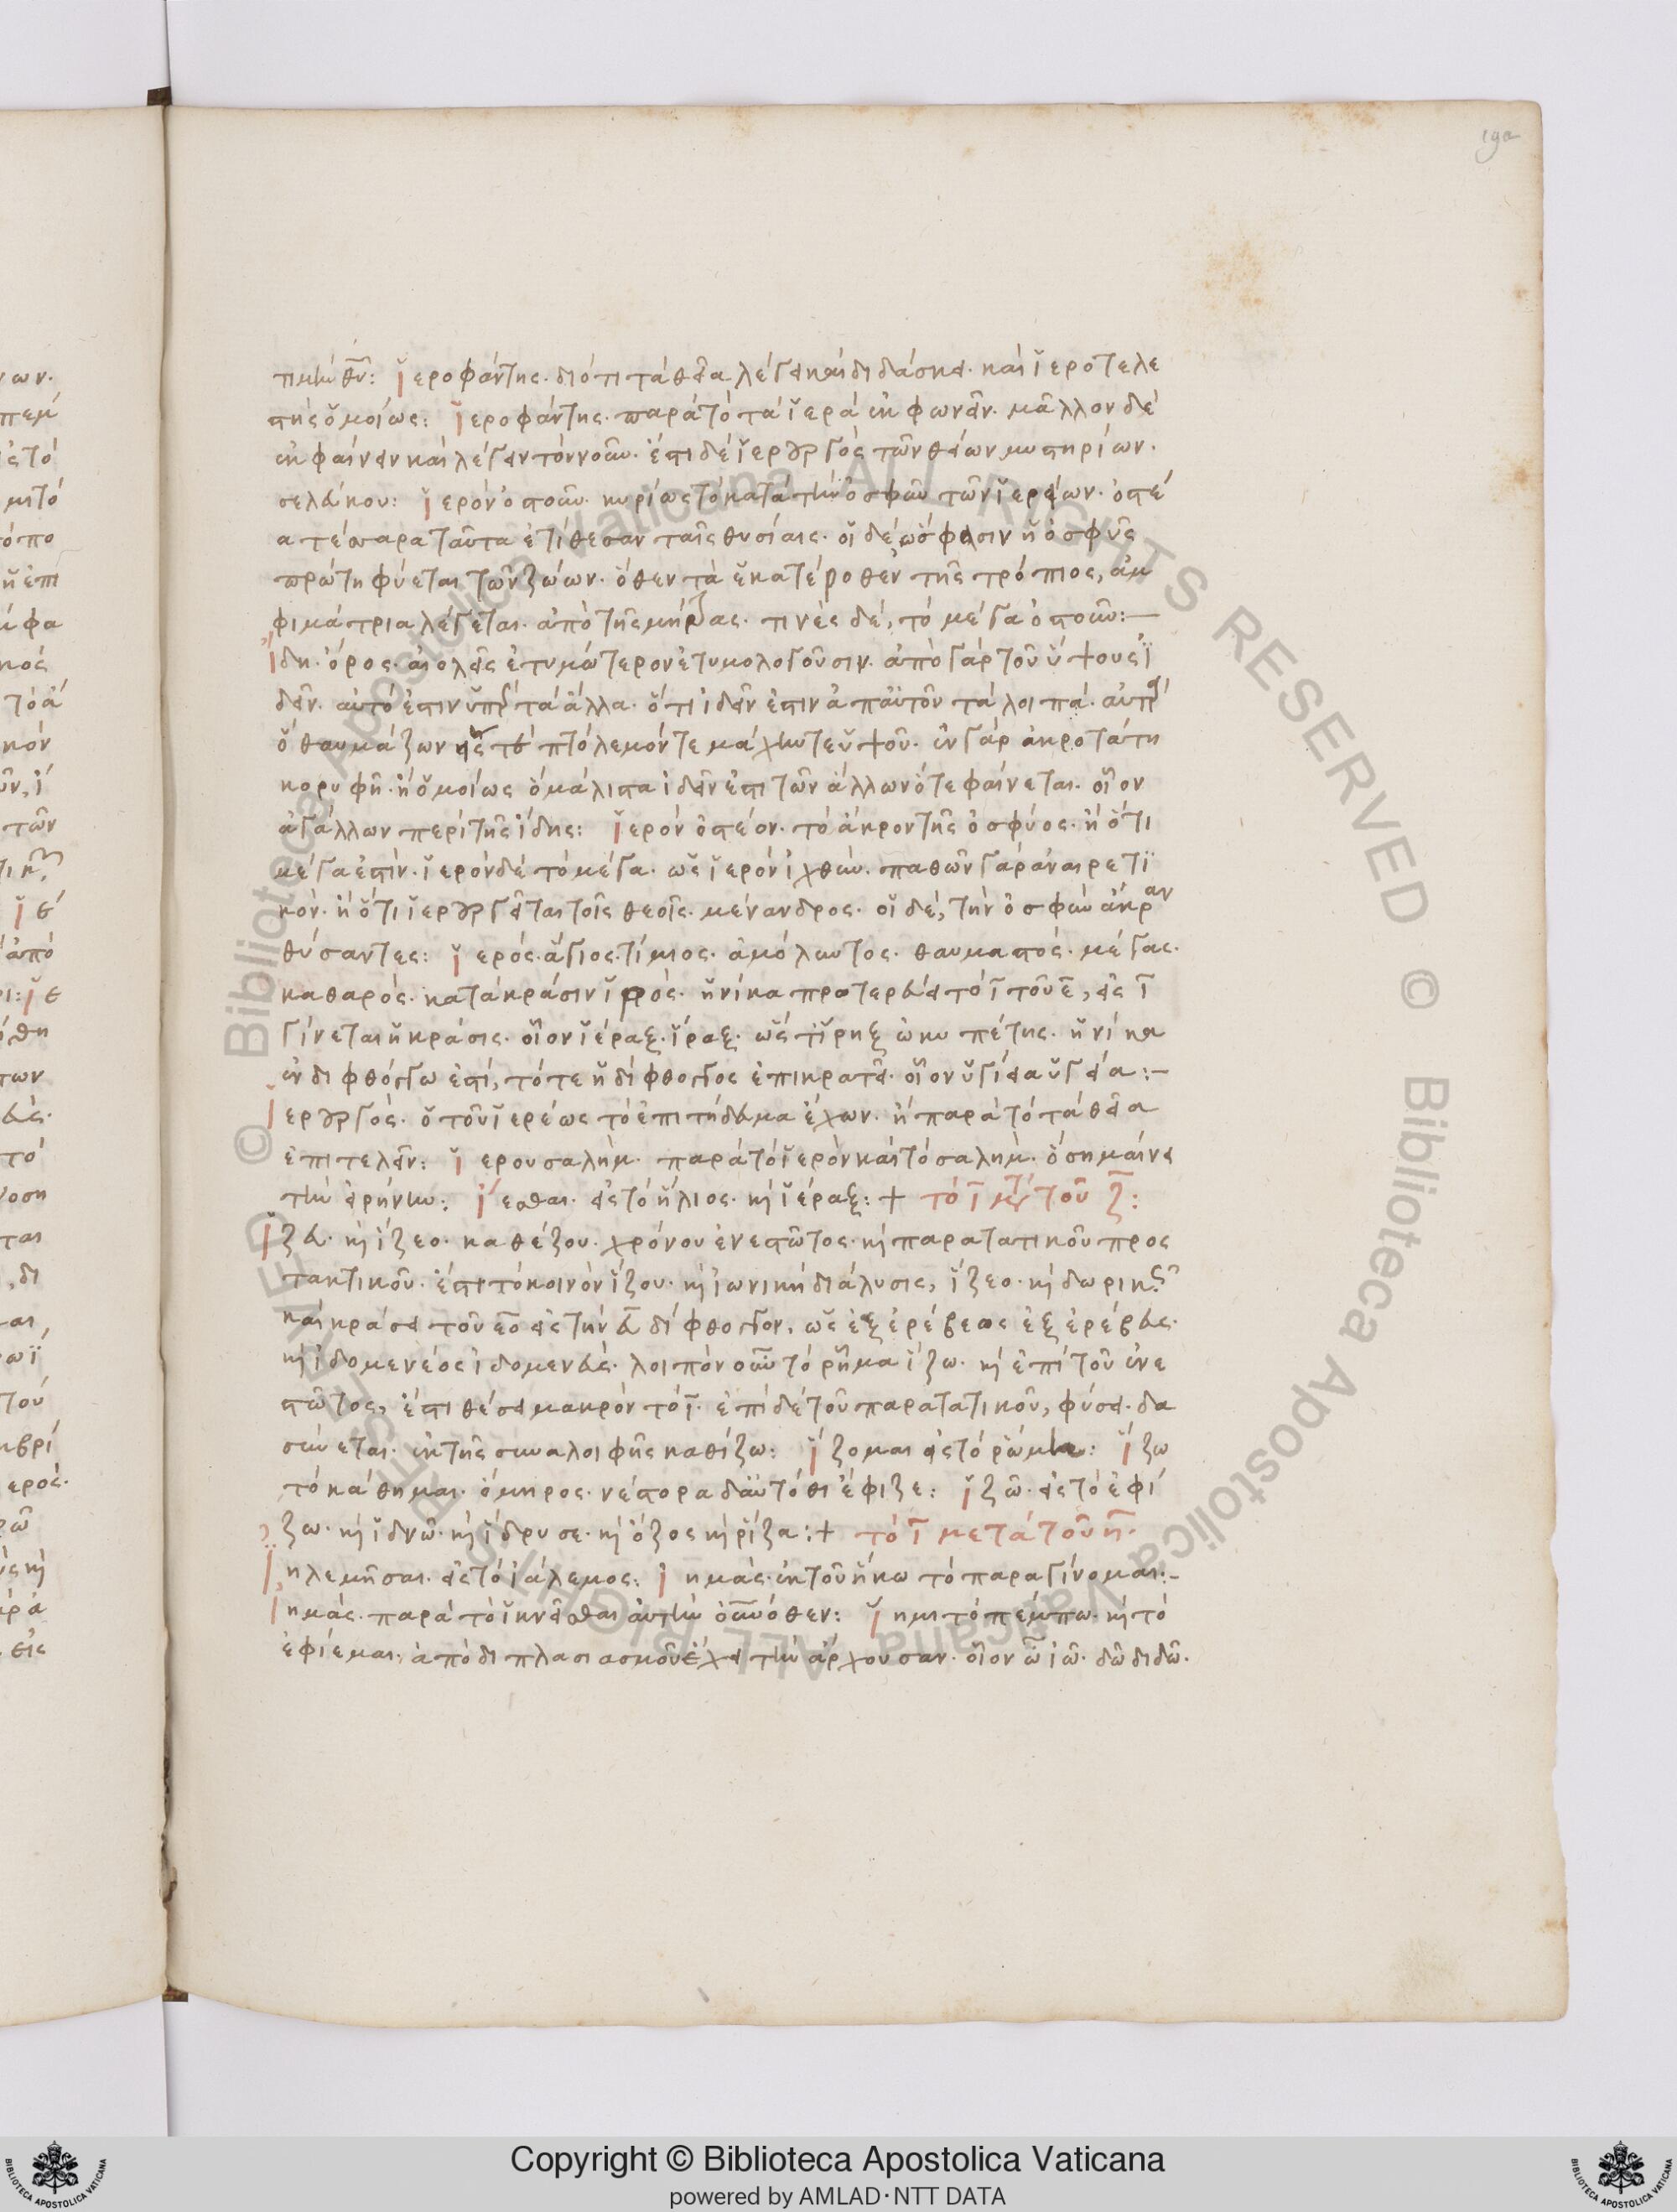 τιμὴν θν: ἱεροφάντης· διότι τὰ θεῖα λέγει καὶ διδάσκει· καὶ ἱεροτελε
στὴς ὁμοίως: ἱεροφάντης· παρὰ τὸ τὰ ἱερὰ ἐκφωνεῖν· μᾶλλον δὲ
ἐκφαίνειν καὶ λέγειν τὸν νοῦν· ἔστι δὲ ἱερουργὸς τῶν θείων μυστηρίων·
σελεύκου: ἱερὸν ὀστοῦν· κυρίως τὸ κατὰ τὴν ὀσφῦν τῶν ἱερείων· ὀστέ
α τὲ παρα ταῦτα ἐτίθεσαν ταῖς θυσίαις· οἱ δὲ ὥς φασιν ἡ ὀσφῦς
πρώτη φύεται τῶν ζώων· ὅθεν τὰ ἑκατέροθεν τῆς τρόπιος, ἀμ
φιμάτρια λέγεται· ἀπὸ τῆς μήτρας· τινὲς δὲ, τὸ μέγα ὀστοῦν:—
ἴδη· ὄρος· αἰολεῖς ἐτυμώτερον ἐτυμολογοῦσιν· ἀπὸ γὰρ τοῦ ὕψους ἰ
δεῖν· αὐτό ἐστιν ὑπὲρ τὰ ἄλλα· ὅτι ἰδεῖν ἐστιν ἀπ' αὐτοῦ τὰ λοιπά·
ὁ θαυμάζων πτόλεμόν τε μάχην τε ὑψοῦ· ἐν γὰρ ἀκροτάτη
κορυφῇ· ἢ ὁμοίως ὁ μάλιστα ἰδεῖν ἐπὶ τῶν ἄλλων ὅτε φαίνεται· οἷον
ἀγάλλων περὶ τῆς ἴδης: ἱερὸν ὀστέον· τὸ ἄκρον τῆς ὀσφύος· ἢ ὅτι
μέγα ἐστίν· ἱερὸν δὲ τὸ μέγα· ὡς ἱερὸν ἰχθύν· παθῶν γὰρ ἀναιρετι
κόν· ἢ ὅτι ἱερουργεῖται τοῖς θεοῖς· μένανδρος· οἱ δὲ, τὴν ὀσφῦν ἄκραν
θύσαντες: ἱερός· ἅγιος· τίμιος· ἀμόλυντος· θαυμαστός· μέγας·
καθαρός· κατὰ κρᾶσιν ἱρός· ἡνίκα προτερεύει τὸ ι τοῦ ε, εἰς ι
γίνεται ἡ κρᾶσις· οἷον ἱέραξ· ἵραξ· ὡς ἴρηξ ὠκυπέτης· ἡνίκα
ἐν διφθόγγω ἐστί, τότε ἡ δίφθογγος ἐπικρατεῖ· οἷον ὑγίεια ὑγεία:—
ἱερουργός· ὁ τοῦ ἱερέως τὸ ἐπιτήδευμα ἔχων· ἢ παρὰ τὸ τὰ θεῖα
ἐπιτελεῖν: ἱερουσαλήμ· παρὰ τὸ ἱερὸν καὶ τὸ σαλήμ· ὃ σημαίνει
τὴν εἰρήνην: ἵεσθαι· εἰς τὸ ἥλιος· καὶ ἱέραξ: + τὸ ι μετὰ τοῦ ζ:
ἵζευ· καὶ ἵζεο· καθέζου· χρόνου ἐνεστῶτος· καὶ παρατατικοῦ προς
τακτικοῦ· ἔστι τὸ κοινὸν ἵζου· καὶ ἰωνικὴ διάλυσις, ἵζεο· καὶ δωρικῆς
καὶ κράσει τοῦ εο εἰς τὴν ευ δίφθογγον· ὡς ἐξ ἐρέβεος ἐξ ἐρέβευς·
καὶ ἰδομενέος ἰδομενεύς· λοιπὸν οὖν τὸ ῥῆμα ἵζω· καὶ ἐπὶ τοῦ ἐνε
στῶτος, ἔστι θέσει μακρὸν τὸ ι· ἐπὶ δὲ τοῦ παρατατικοῦ, φύσει· δα
σύνεται· ἐκ τῆς συναλοιφῆς καθίζω: ἵζομαι εἰς τὸ ῥώμη: ἵζω
τὸ κάθημαι· ὅμηρος· νέστορα δ' αὐτόθι ἔφιζε: ἱζῶ· εἰς τὸ ἐφί
ζω· καὶ ἱδνῶ· καὶ ἵδρυσε· καὶ ὄζος καὶ ῥίζα:+ τὸ ι μετὰ τοῦ η·
ἰηλεμῆσαι· εἰς τὸ ἰάλεμος: ἰκμάς· ἐκ τοῦ ἥκω τὸ παραγίνομαι:—
ἰκμάς· παρὰ τὸ ἱκνεῖσθαι αὐτὴν: ἵημι τὸ πέμπω· καὶ τὸ
ἐφίεμαι· ἀπὸ διπλασιασμοῦ ἔχει τὴν ἄρχουσαν· οἷον ὧ ἱῶ· δῶ διδῶ·